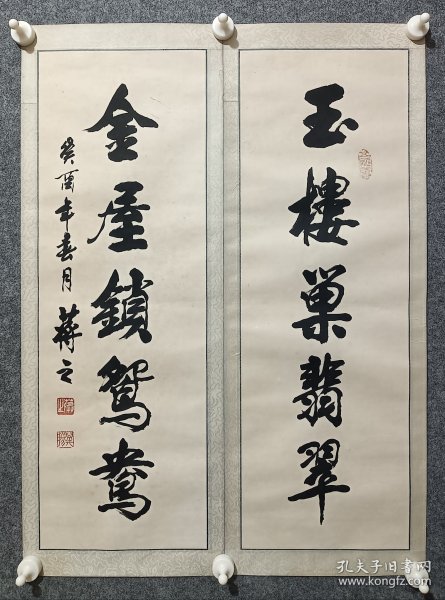 玉樓巢翡翠
金屋鎖鴛鴦
癸酉年春月
蔣之
孔夫子旧书网
www.kongfz.com